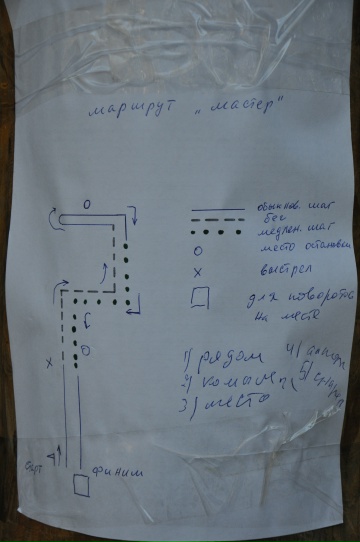 маршрут „мастер"
О
обыкнов. шаг
бег
медлен. шаг
О место остановки
х выстрел
для поворотов
на месте
х
О
1) рядом
4)
2)
5)
3) место
финиш